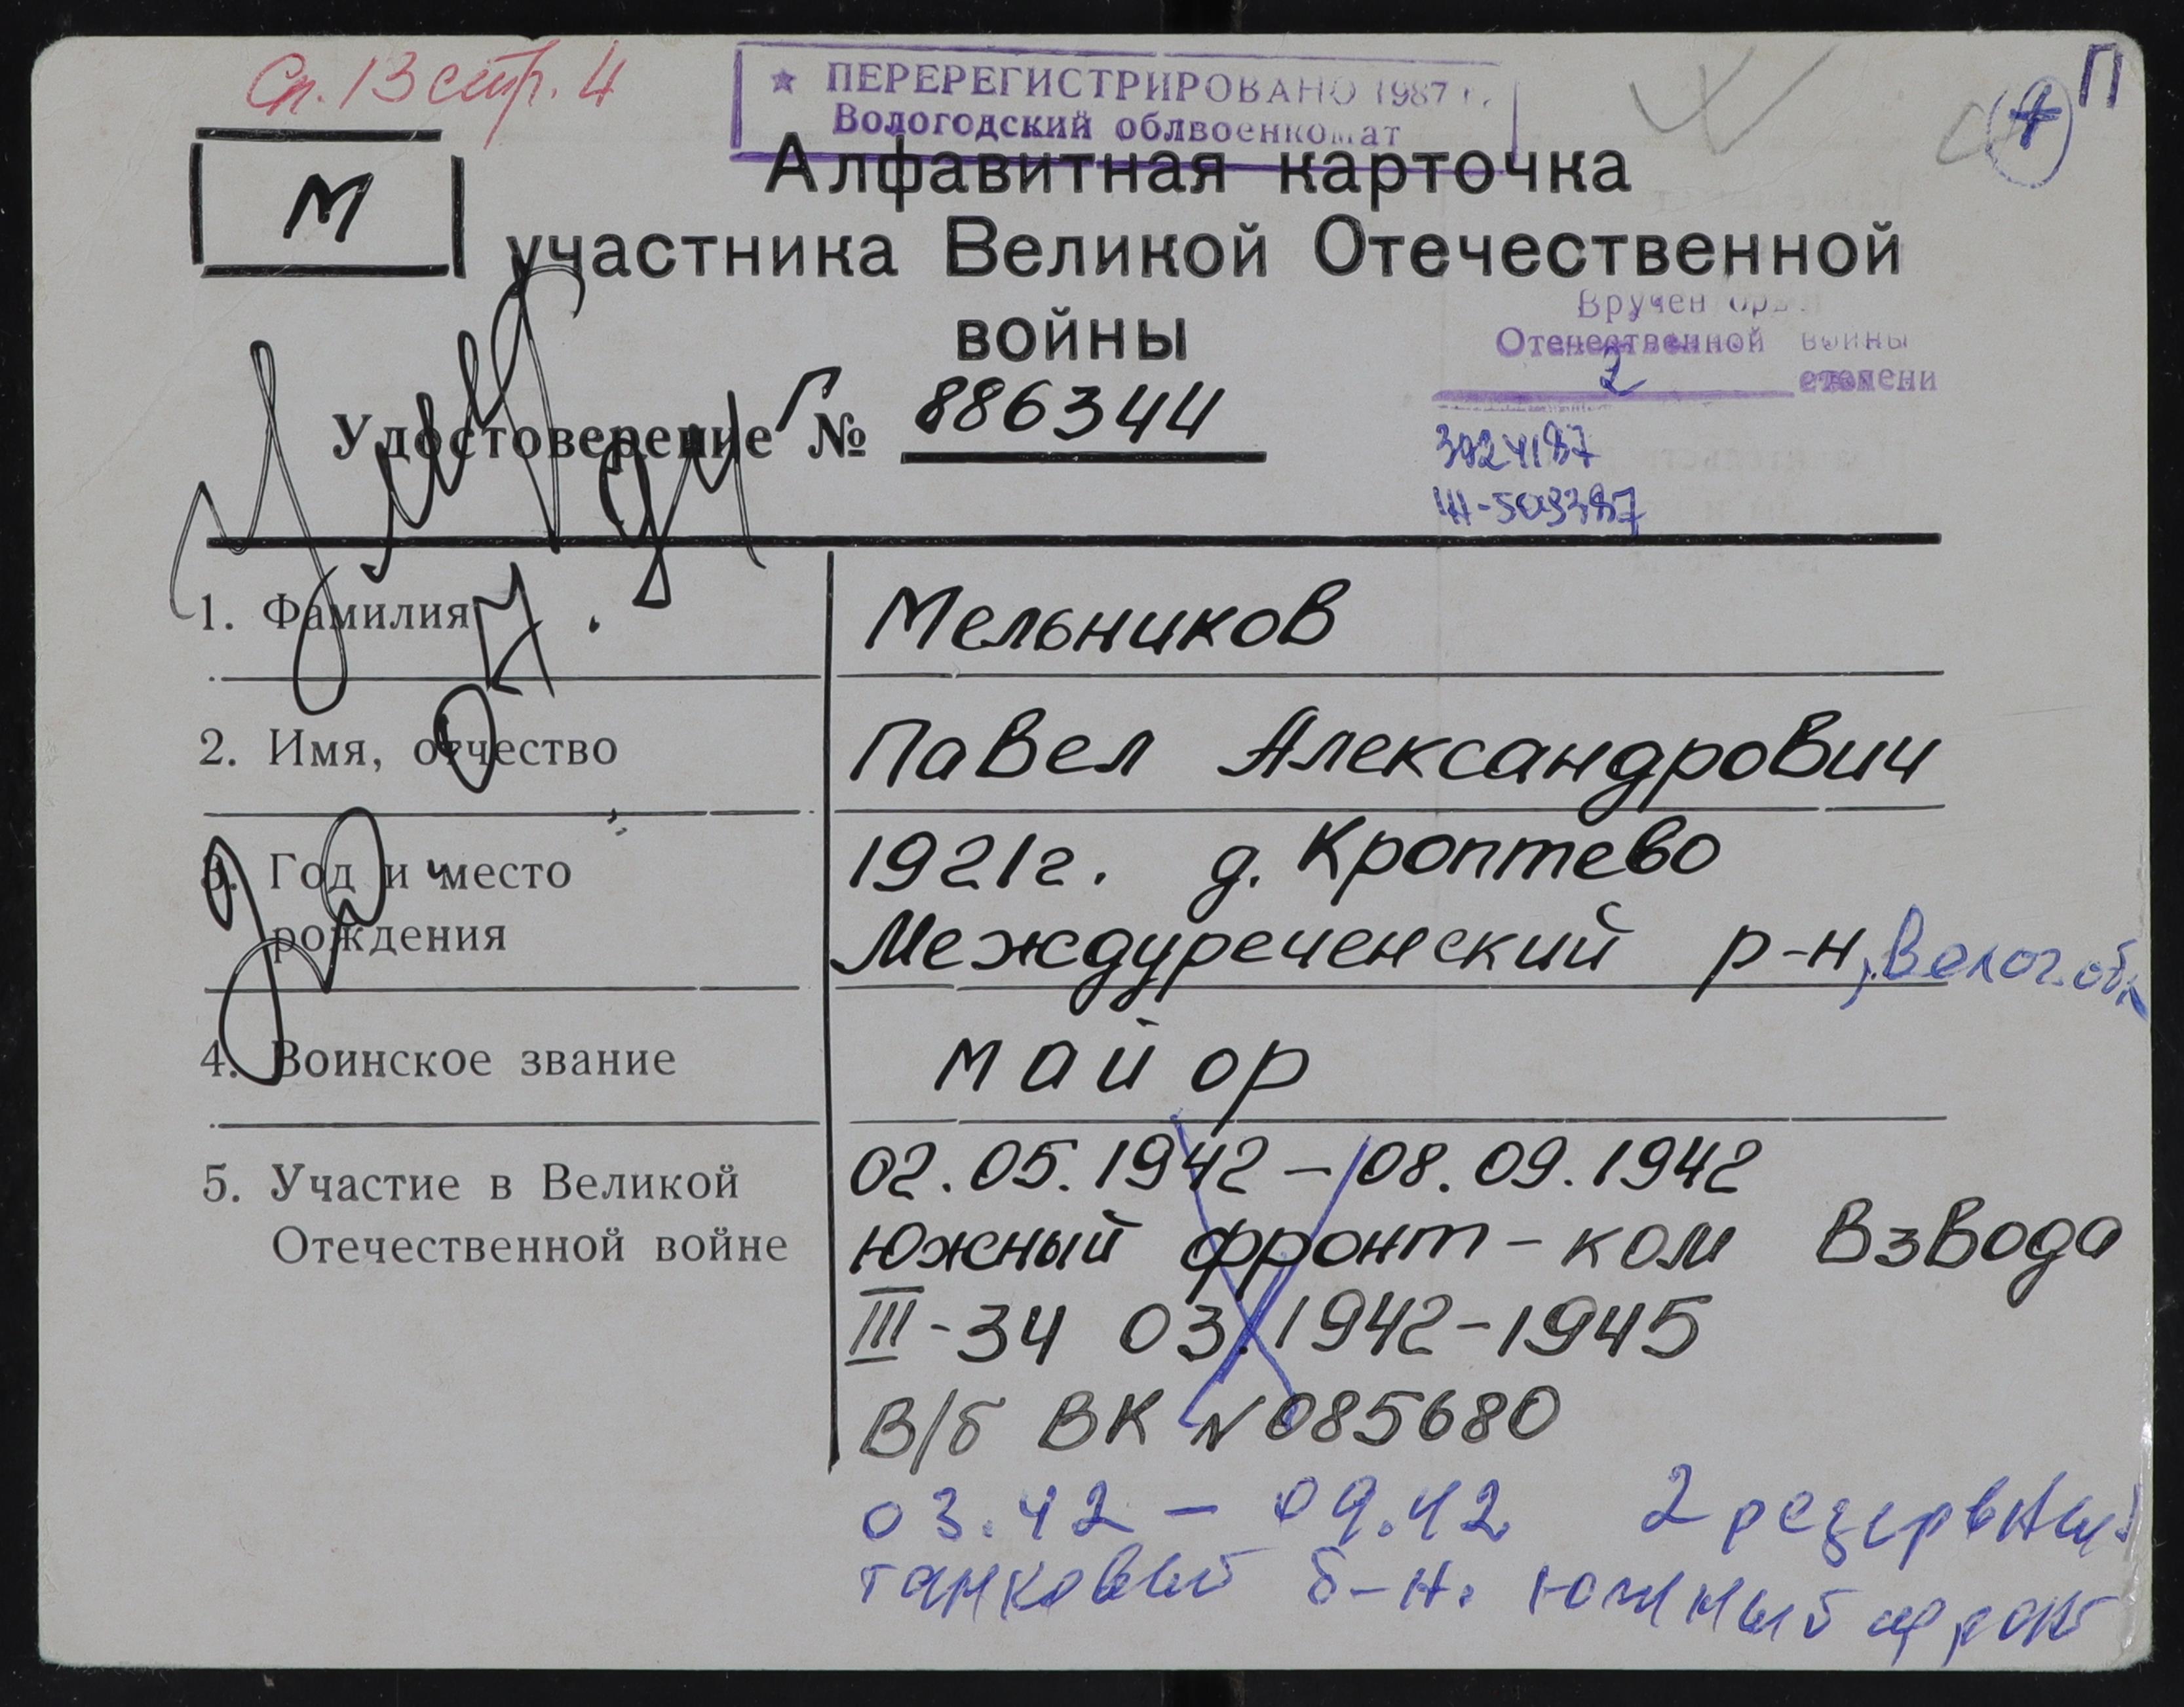 Сп. 13 стр. 4
★ ПЕРЕРЕГИСТРИРОВАНО 1987 г.
Вологодский облвоенкомат
П
М
Алфавитная карточка
участника Великой Отечественной
войны
Вручен орд.
Отечественной войны
2 степени
Удостоверение Г № 886344
3924187
Умер
1. Фамилия Мельников
2. Имя, отчество Павел Александрович
3. Год и место 1921г. д. Кроптево
рождения Междуреченский р-н, Волог. обл
4. Воинское звание майор
5. Участие в Великой 02.05.1942 – 08.09.1942
Отечественной войне Южный фронт – ком Взвода
III-34 03.1942-1945
В/б ВК N085680
03.42 – 09.42 2 резервный
танковый б-н. Южный фронт